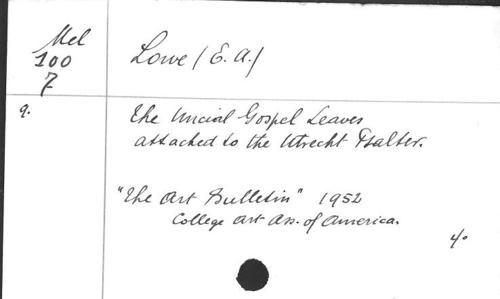 Mel
100
7
Lowe (E.A.)
9.
The Uncial Gospel Leaves
attached to the Utrecht Psalter.
"The Art Bulletin" 1952
College Art Ass. of America.
4°